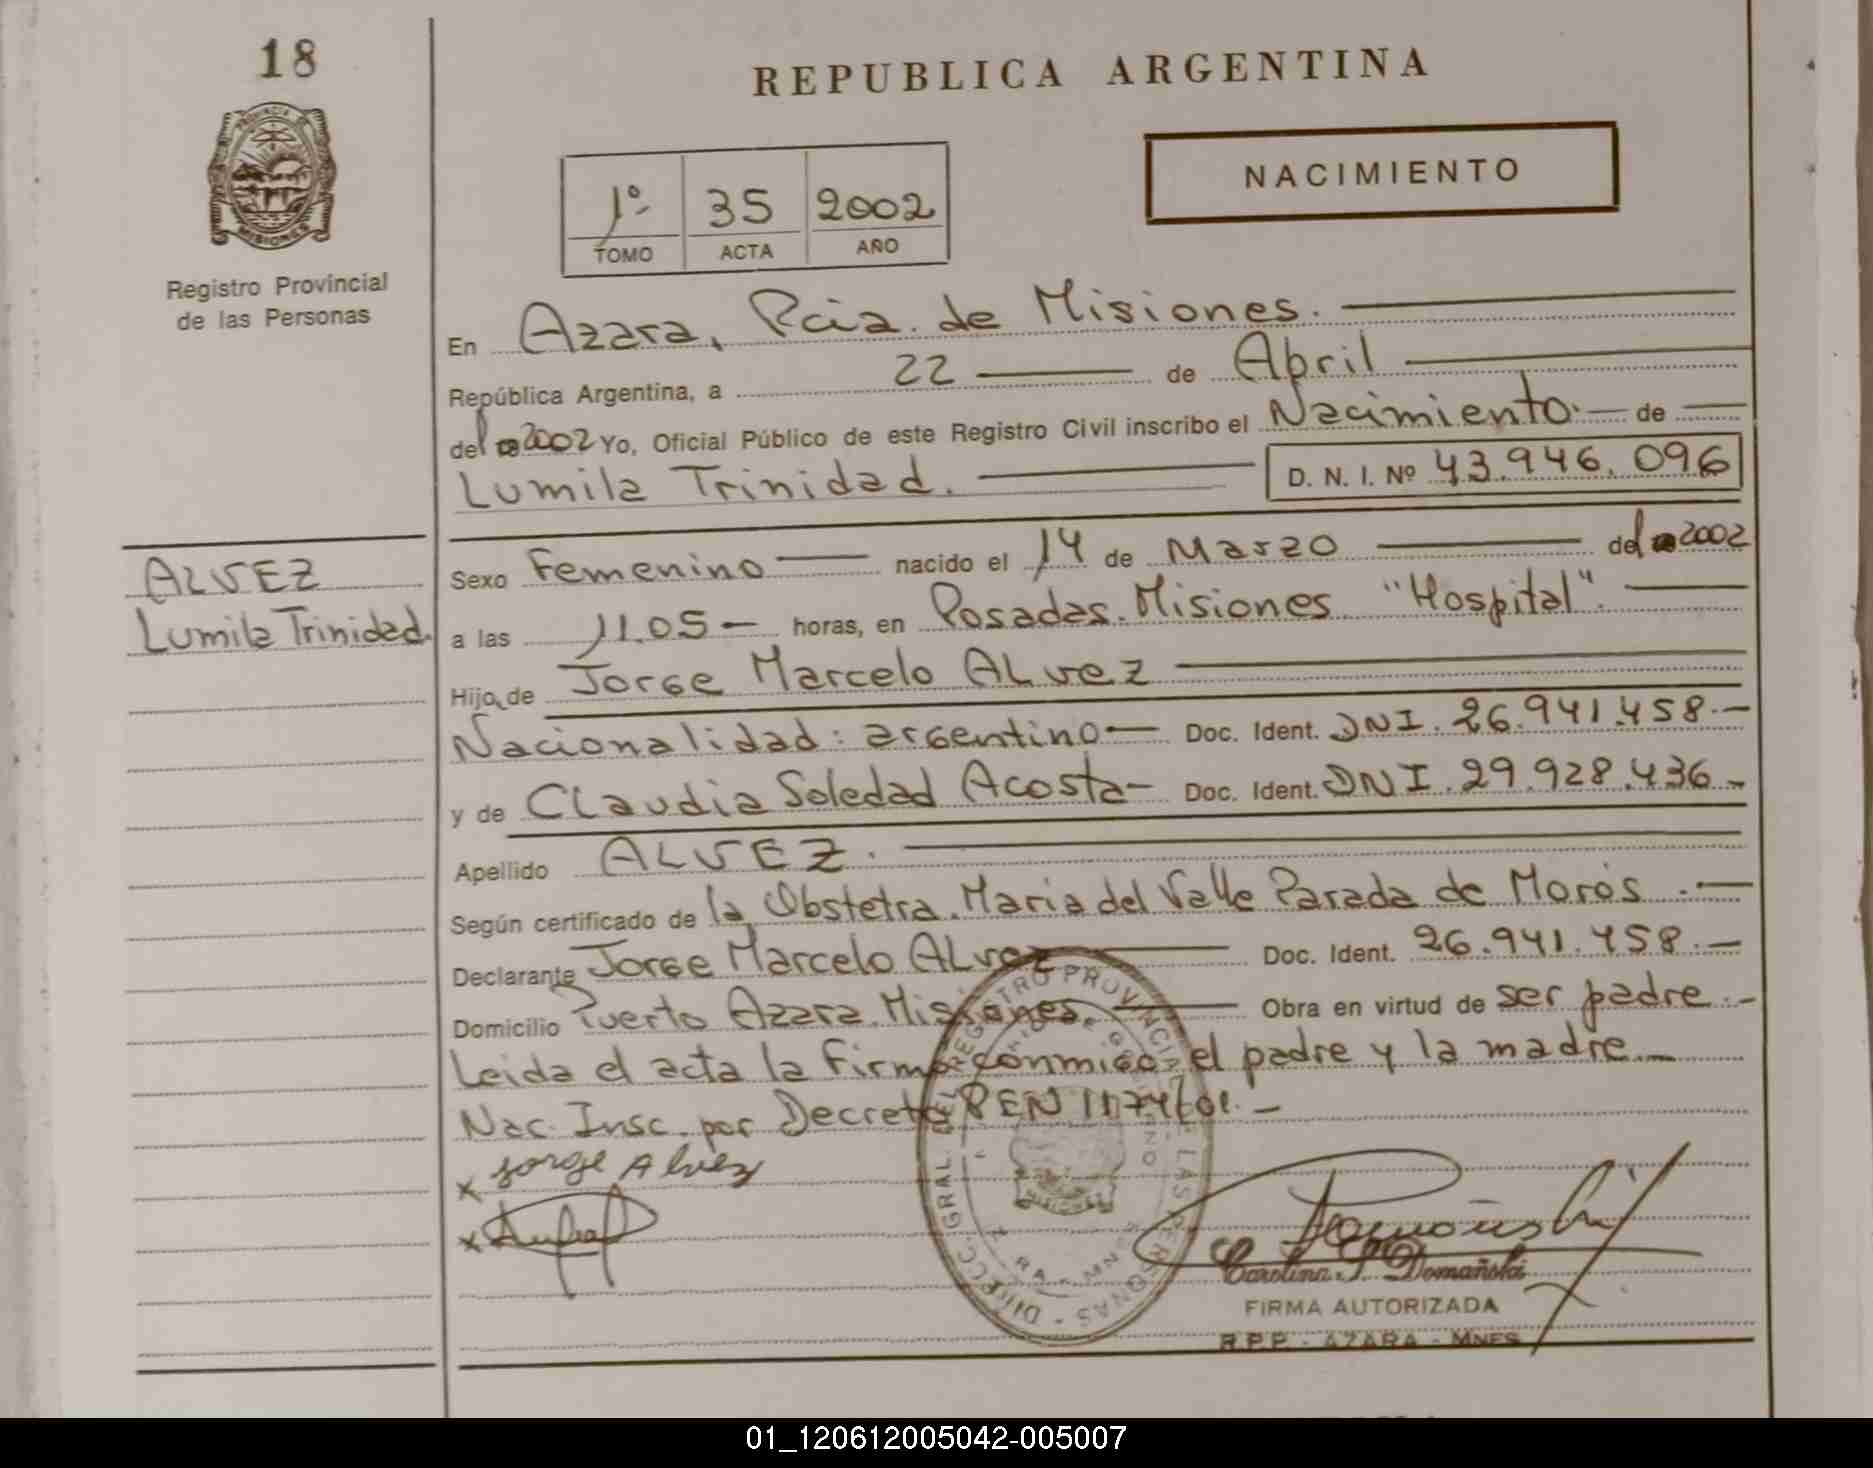 18
REPUBLICA ARGENTINA
PROVINCIA DE
MISIONES
NACIMIENTO
1º 35 2002
TOMO ACTA AÑO
Registro Provincial
de las Personas
En Azara, Pcia. de Misiones.
República Argentina, a 22 de Abril
del 2002 Yo, Oficial Público de este Registro Civil inscribo el Nacimiento. de
Lumila Trinidad. D. N. I. Nº 43.946.096
ALVEZ
Lumila Trinidad.
Sexo Femenino nacido el 14 de Marzo del 2002
a las 11.05 horas, en Posadas. Misiones "Hospital".
Hija de Jorge Marcelo ALvez
Nacionalidad: argentino Doc. Ident. DNI. 26.941.458.-
y de CLaudia Soledad Acosta- Doc. Ident. DNI. 29.928.436.-
Apellido ALVEZ.
Según certificado de la Obstetra. Maria del Valle Parada de Morós.-
Declarante Jorge Marcelo ALvez Doc. Ident. 26.941.458.-
Domicilio Puerto Azara. Misiones. Obra en virtud de ser padre.-
Leida el acta la firman conmigo, el padre y la madre
Nac. Insc. por Decreto PEN 1174/01.-
x Jorge Alvez
x
DIRECC. GRAL. DEL REGISTRO PROVINCIAL DE LAS PERSONAS
MISIONES
Carolina S. Domañski
FIRMA AUTORIZADA
R.P.P. - AZARA - MNES
01_120612005042-005007